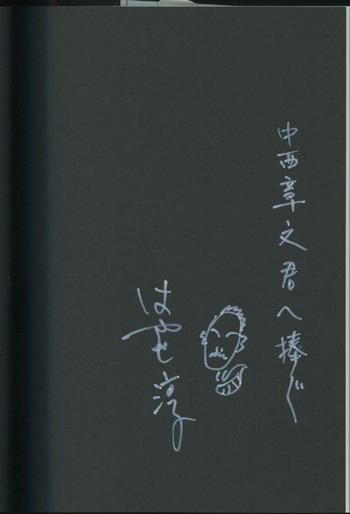 中西章文君へ捧ぐ
はやせ淳